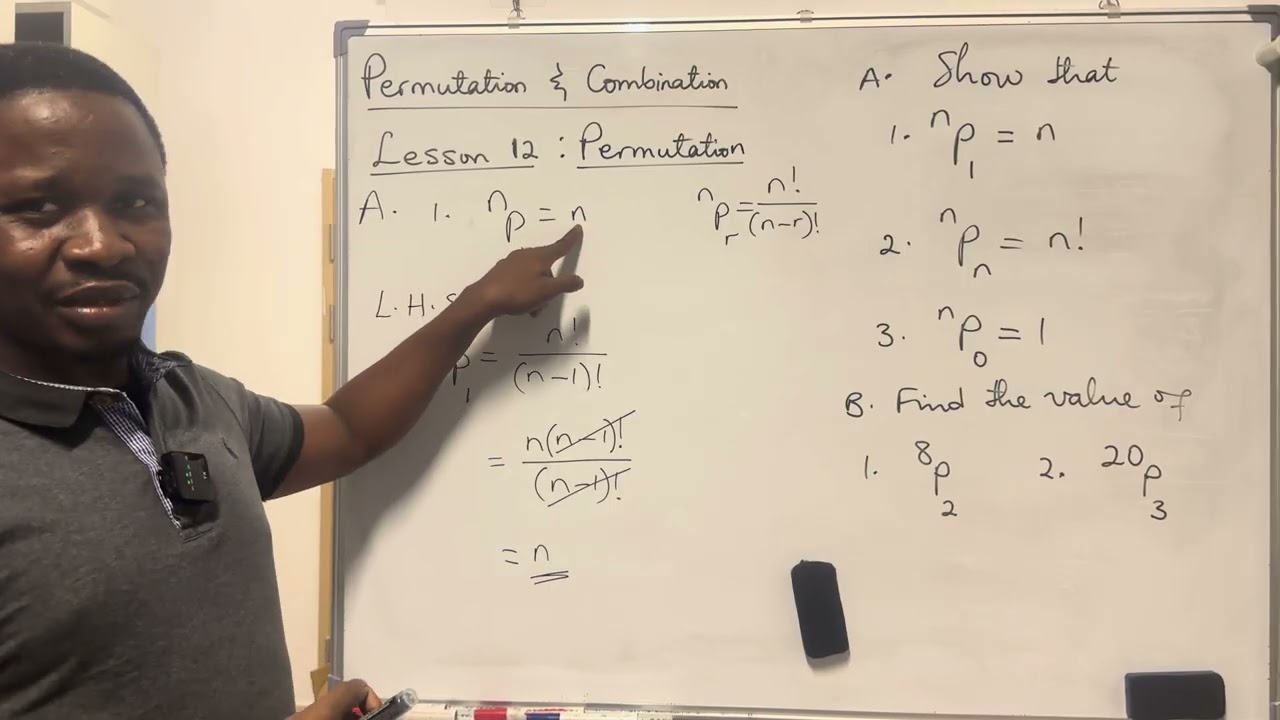 Permutation & Combination
Lesson 12 : Permutation
A. 1. ⁿP = n
ⁿPᵣ = n!/(n-r)!
L.H.S
P₁ = n!/(n-1)!
= n(n-1)!/(n-1)!
= n
A. Show that
1. ⁿP₁ = n
2. ⁿPₙ = n!
3. ⁿP₀ = 1
B. Find the value of
1. ⁸P₂ 2. ²⁰P₃